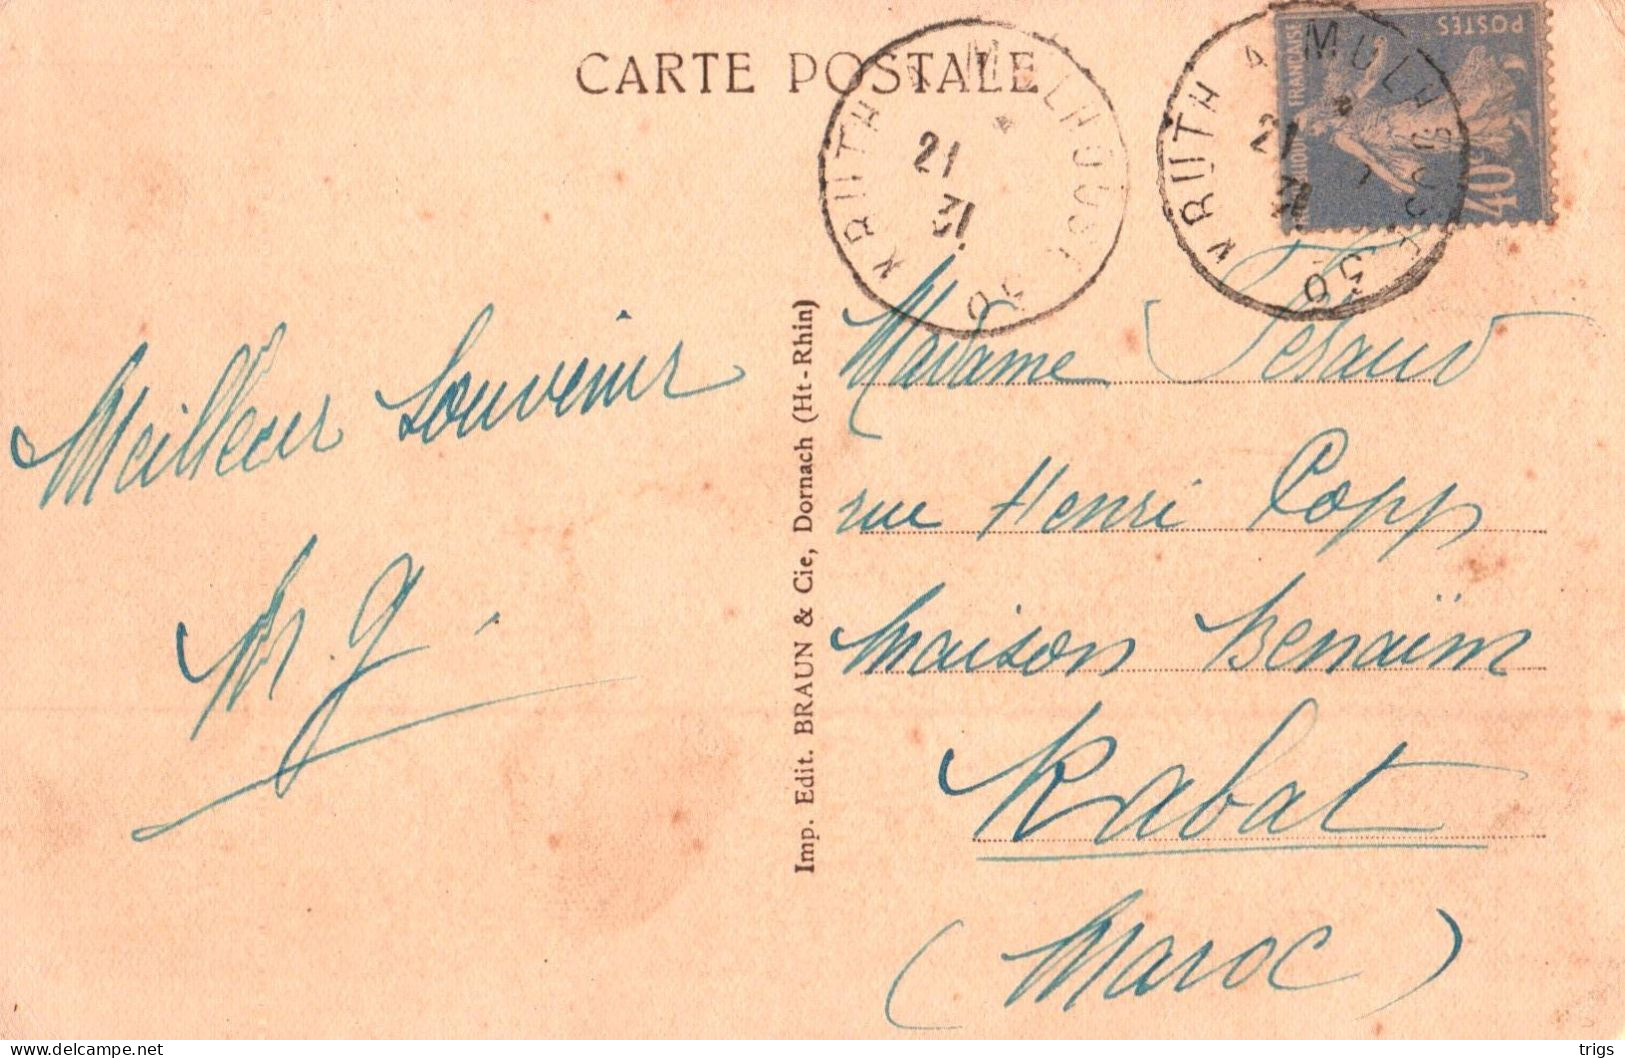 CARTE POSTALE
KRUTH A MULHOUSE
21
31
30
KRUTH A MULHOUSE
21
31
30
POSTES
RÉPUBLIQUE FRANÇAISE
40c
Meilleur Souvenir
M. g.
Imp. Edit. BRAUN & Cie, Dornach (Ht-Rhin)
Madame
rue Henri Popp
Maison Benaïm
Rabat
(Maroc)
www.delcampe.net
trigs